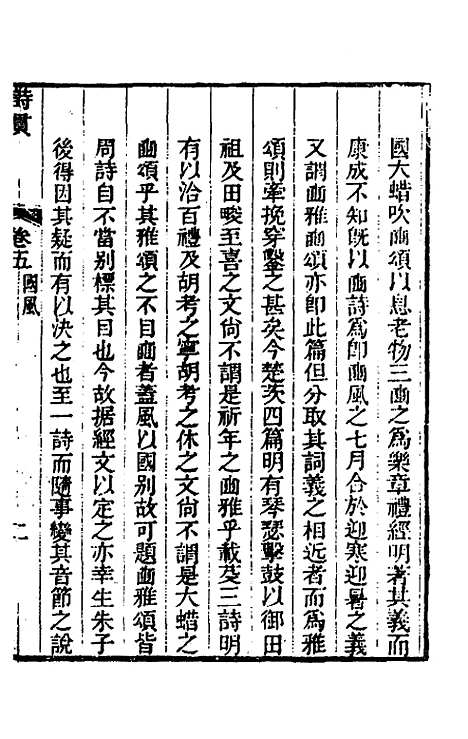 國大蜡吹豳頌以息老物三豳之爲樂章禮經明著其義而
康成不知旣以豳詩爲卽豳風之七月合於迎寒迎暑之義
又謂豳雅豳頌亦卽此篇但分取其詞義之相近者而爲雅
頌則牽挽穿鑿之甚矣今楚茨四篇明有琴瑟擊鼓以御田
祖及田畯至喜之文尙不謂是祈年之豳雅乎載芟三詩明
有以洽百禮及胡考之寧胡考之休之文尙不謂是大蜡之
豳頌乎其雅頌之不目豳者蓋風以國别故可題豳雅頌皆
周詩自不當别標其目也今故据經文以定之亦幸生朱子
後得因其疑而有以決之也至一詩而隨事變其音節之說
詩貫
卷五 國風